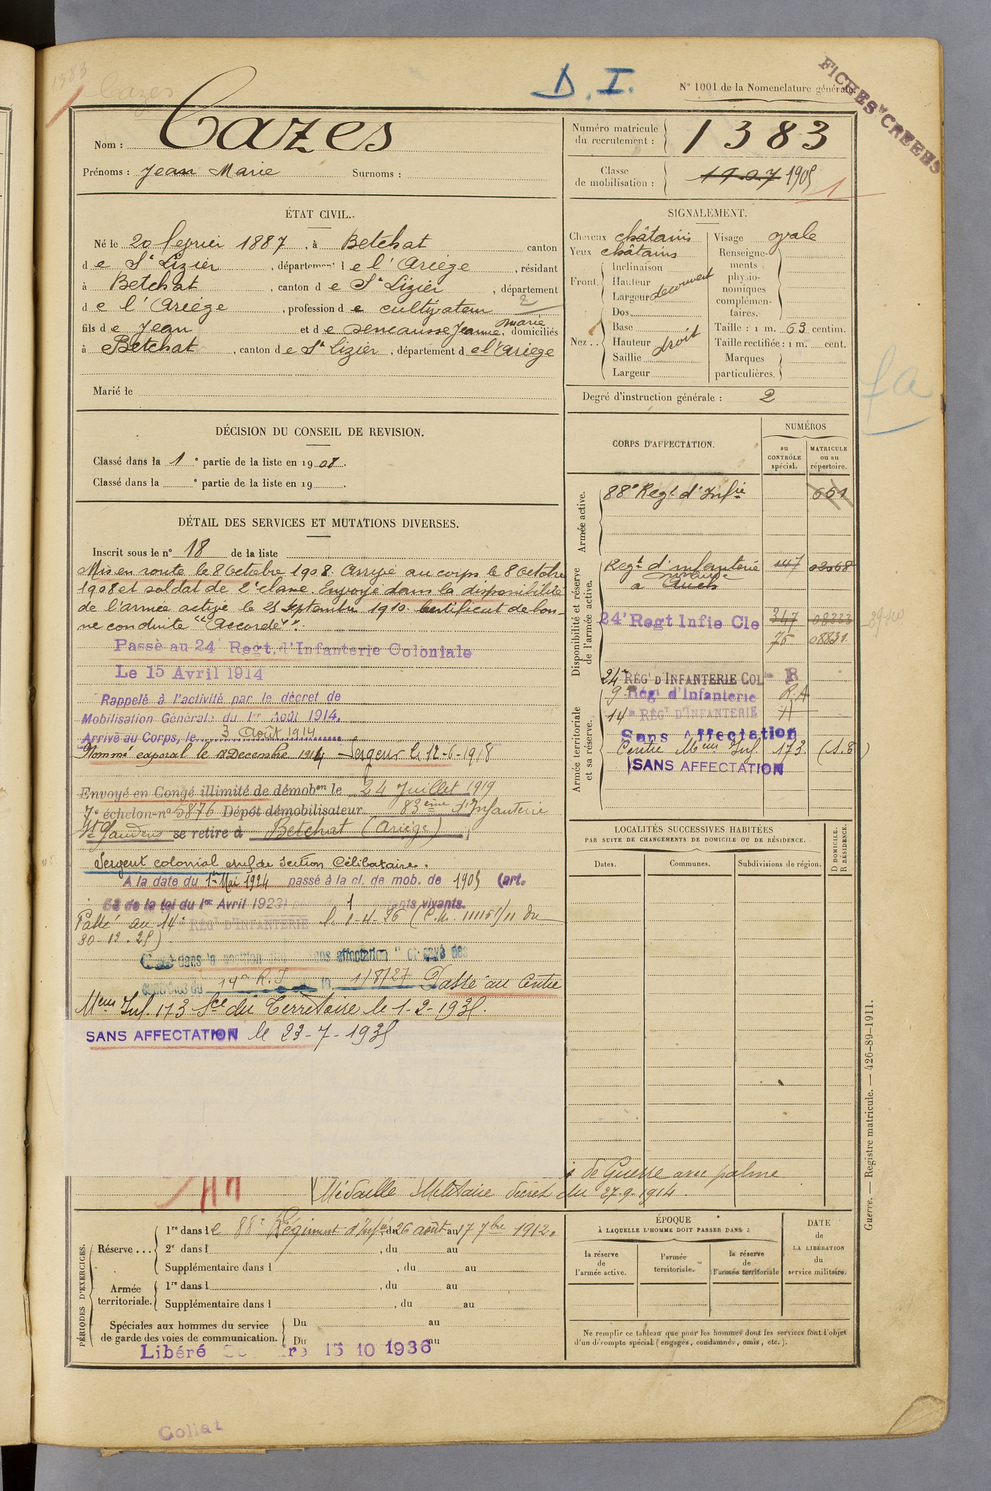 1383
Cazes
D. I.
N° 1001 de la Nomenclature générale.
FICHES CRÉÉES
Nom : Cazes
Prénoms : Jean Marie Surnoms :
Numéro matricule du recrutement : 1383
Classe de mobilisation : 1907 1905
1
ÉTAT CIVIL.
Né le 20 février 1887, à Betchat canton
de St Lizier, département de l'Ariège, résidant
à Betchat, canton de St Lizier, département
de l'Ariège, profession de cultivateur
2
fils de Jean et de Sencausse Jeanne, Marie domiciliés
à Betchat, canton de St Lizier, département de l'Ariège
Marié le
SIGNALEMENT.
Cheveux châtains
Yeux châtains
Front. Inclinaison
Hauteur
Largeur découvert
Nez.. Dos
Base
Hauteur droit
Saillie
Largeur
Visage ovale
Renseignements physionomiques complémentaires.
Taille : 1 m. 63 centim.
Taille rectifiée : 1 m. cent.
Marques particulières.
Degré d'instruction générale : 2
DÉCISION DU CONSEIL DE REVISION.
Classé dans la 1e partie de la liste en 1908.
Classé dans la e partie de la liste en 19
DÉTAIL DES SERVICES ET MUTATIONS DIVERSES.
Inscrit sous le n° 18 de la liste
Mis en route le 8 Octobre 1908. Arrivé au corps le 8 Octobre
1908 et soldat de 2e classe. Envoyé dans la disponibilité
de l'armée active le 25 Septembre 1910. Certificat de bon-
ne conduite "Accordé".
Passé au 24 Regt. d'Infanterie Coloniale
Le 15 Avril 1914
Rappelé à l'activité par le décret de
Mobilisation Générale du 1er Août 1914.
Arrivé au Corps, le 3 Août 1914
Nommé caporal le Décembre 1914 Sergent le 12-6-1918
Envoyé en Congé illimité de démobon le 24 Juillet 1919
7e échelon n° 5876 Dépôt démobilisateur 83ème d'Infanterie
St Gaudens se retire à Betchat (Ariège)
Sergent colonial chef de Section Célibataire.
A la date du 1er Mai 1924 passé à la cl. de mob. de 1905 (art.
58 de la loi du 1er Avril 1923) 1 enfants vivants.
Passé au 14e RÉG' D'INFANTERIE le 1-4-26 (C.M. 11115 1/11 du
30-12-25)
Classé dans la position dite "sans affectation" et rayé des
contrôles du 14e R.I. le 1/8/27 Passé au Centre
Mem Inf. 173 Sce du Territoire le 1-2-1935.
SANS AFFECTATION le 23-7-1935
de Guerre avec palme
Médaille Militaire décret du 27.9.1914.
CORPS D'AFFECTATION.
NUMÉROS
au CONTRÔLE spécial.
MATRICULE ou au répertoire.
Armée active.
88e Regt d'Infie 651
Disponibilité et réserve de l'armée active.
Regt d'infanterie 447 02068
à Auch
24' Regt Infie Cle 347 08333
75 08831
Armée territoriale et sa réserve.
24e RÉG' D'INFANTERIE COL R
9e Rég' d'Infanterie R.A
14e RÉG' D'INFANTERIE
Sans Affectation
Centre Mem Inf. 173 (S.B)
SANS AFFECTATION
LOCALITÉS SUCCESSIVES HABITÉES
PAR SUITE DE CHANGEMENTS DE DOMICILE OU DE RÉSIDENCE.
Dates. Communes. Subdivisions de région.
D. DOMICILE. R. RÉSIDENCE.
Guerre. — Registre matricule. — 426-89-1911.
PÉRIODES D'EXERCICES.
Réserve... 1re dans le 88e Régiment d'Infie du 26 août au 17 7bre 1912.
2e dans l , du au
Supplémentaire dans l , du au
Armée territoriale. 1re dans l , du au
Supplémentaire dans l , du au
Spéciales aux hommes du service de garde des voies de communication. Du au
Du au
Libéré 15 10 1936
ÉPOQUE
À LAQUELLE L'HOMME DOIT PASSER DANS :
la réserve de l'armée active.
l'armée territoriale.
la réserve de l'armée territoriale
DATE de LA LIBÉRATION du service militaire.
Ne remplir ce tableau que pour les hommes dont les services font l'objet
d'un décompte spécial (engagés, condamnés, omis, etc.).
Collat